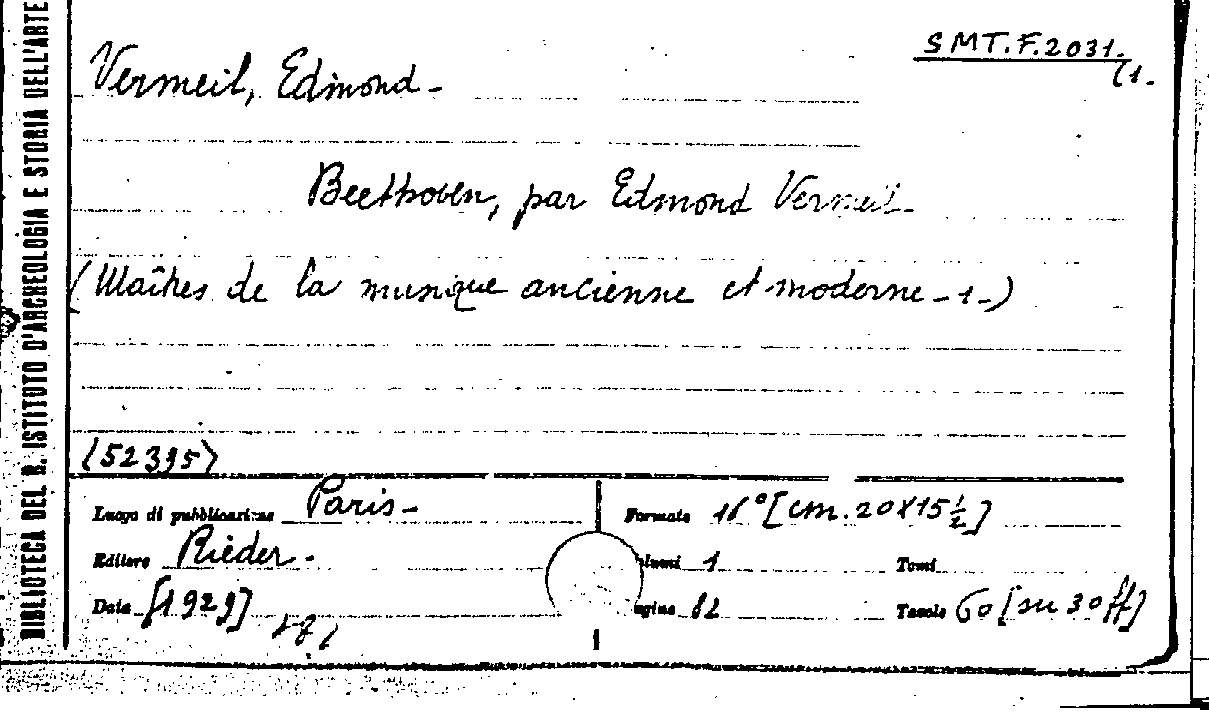 SMT.F.2031.
(1.
Vermeil, Edmond -
Beethoven, par Edmond Vermeil -
(Maîtres de la musique ancienne et moderne - 1 -)
(52395)
Luogo di pubblicazione Paris -
Formato 16° [cm. 20x15½]
Editore Rieder -
Volumi 1 Tomi
Data [1929]
Pagine 82 Tavole 60 [su 30 ff]
BIBLIOTECA DEL R. ISTITUTO D'ARCHEOLOGIA E STORIA DELL'ARTE